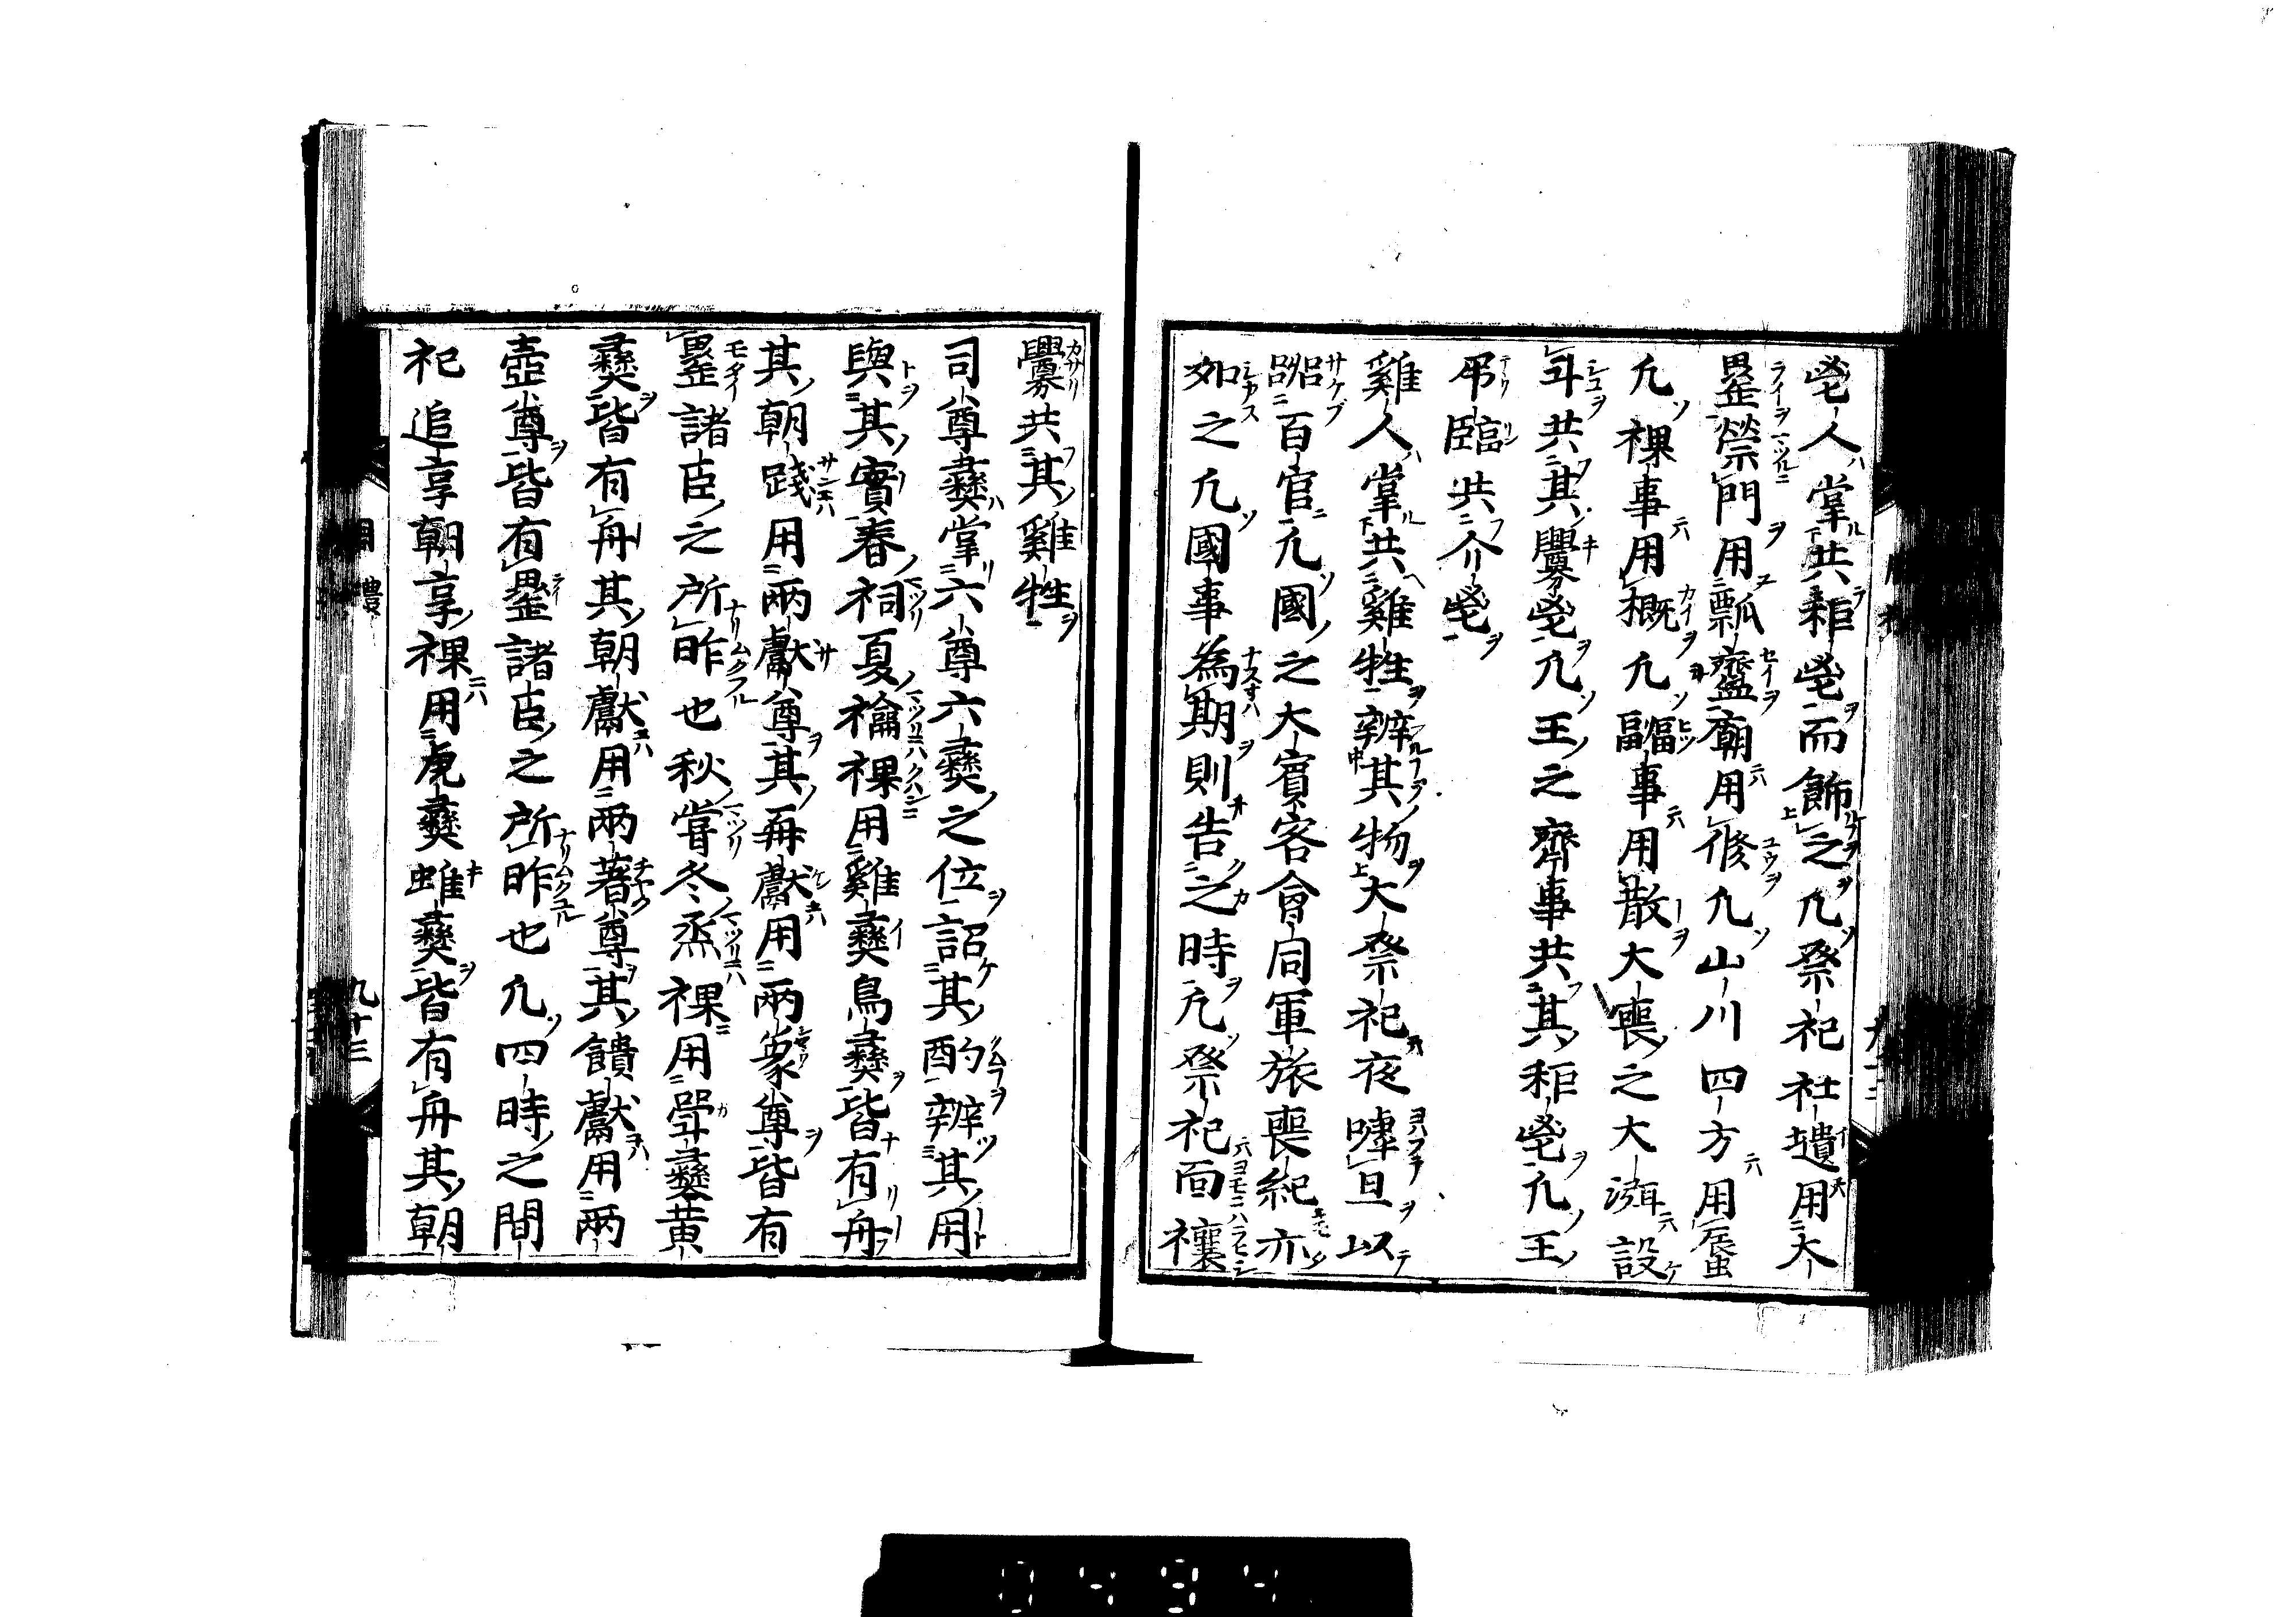 鬯人掌共秬鬯而飾之凡祭祀社壝用大
罍禜門用瓢齎廟用脩凡山川四方用蜃
凡祼事用概凡疈事用散大喪之大渳設
斗共其釁鬯凡王之齊事共其秬鬯凡王
弔臨共介鬯
雞人掌共雞牲辨其物大祭祀夜嘑旦以
嘂百官凡國之大賓客會同軍旅喪紀亦
如之凡國事為期則告之時凡祭祀面禳
釁共其雞牲
司尊彝掌六尊六彝之位詔其酌辨其用
與其實春祠夏禴祼用雞彝鳥彝皆有舟
其朝踐用兩獻尊其再獻用兩象尊皆有
罍諸臣之所昨也秋嘗冬烝祼用斝彝黃
彝皆有舟其朝獻用兩著尊其饋獻用兩
壺尊皆有罍諸臣之所昨也凡四時之間
祀追享朝享祼用虎彝蜼彝皆有舟其朝
禮
九十三
0494